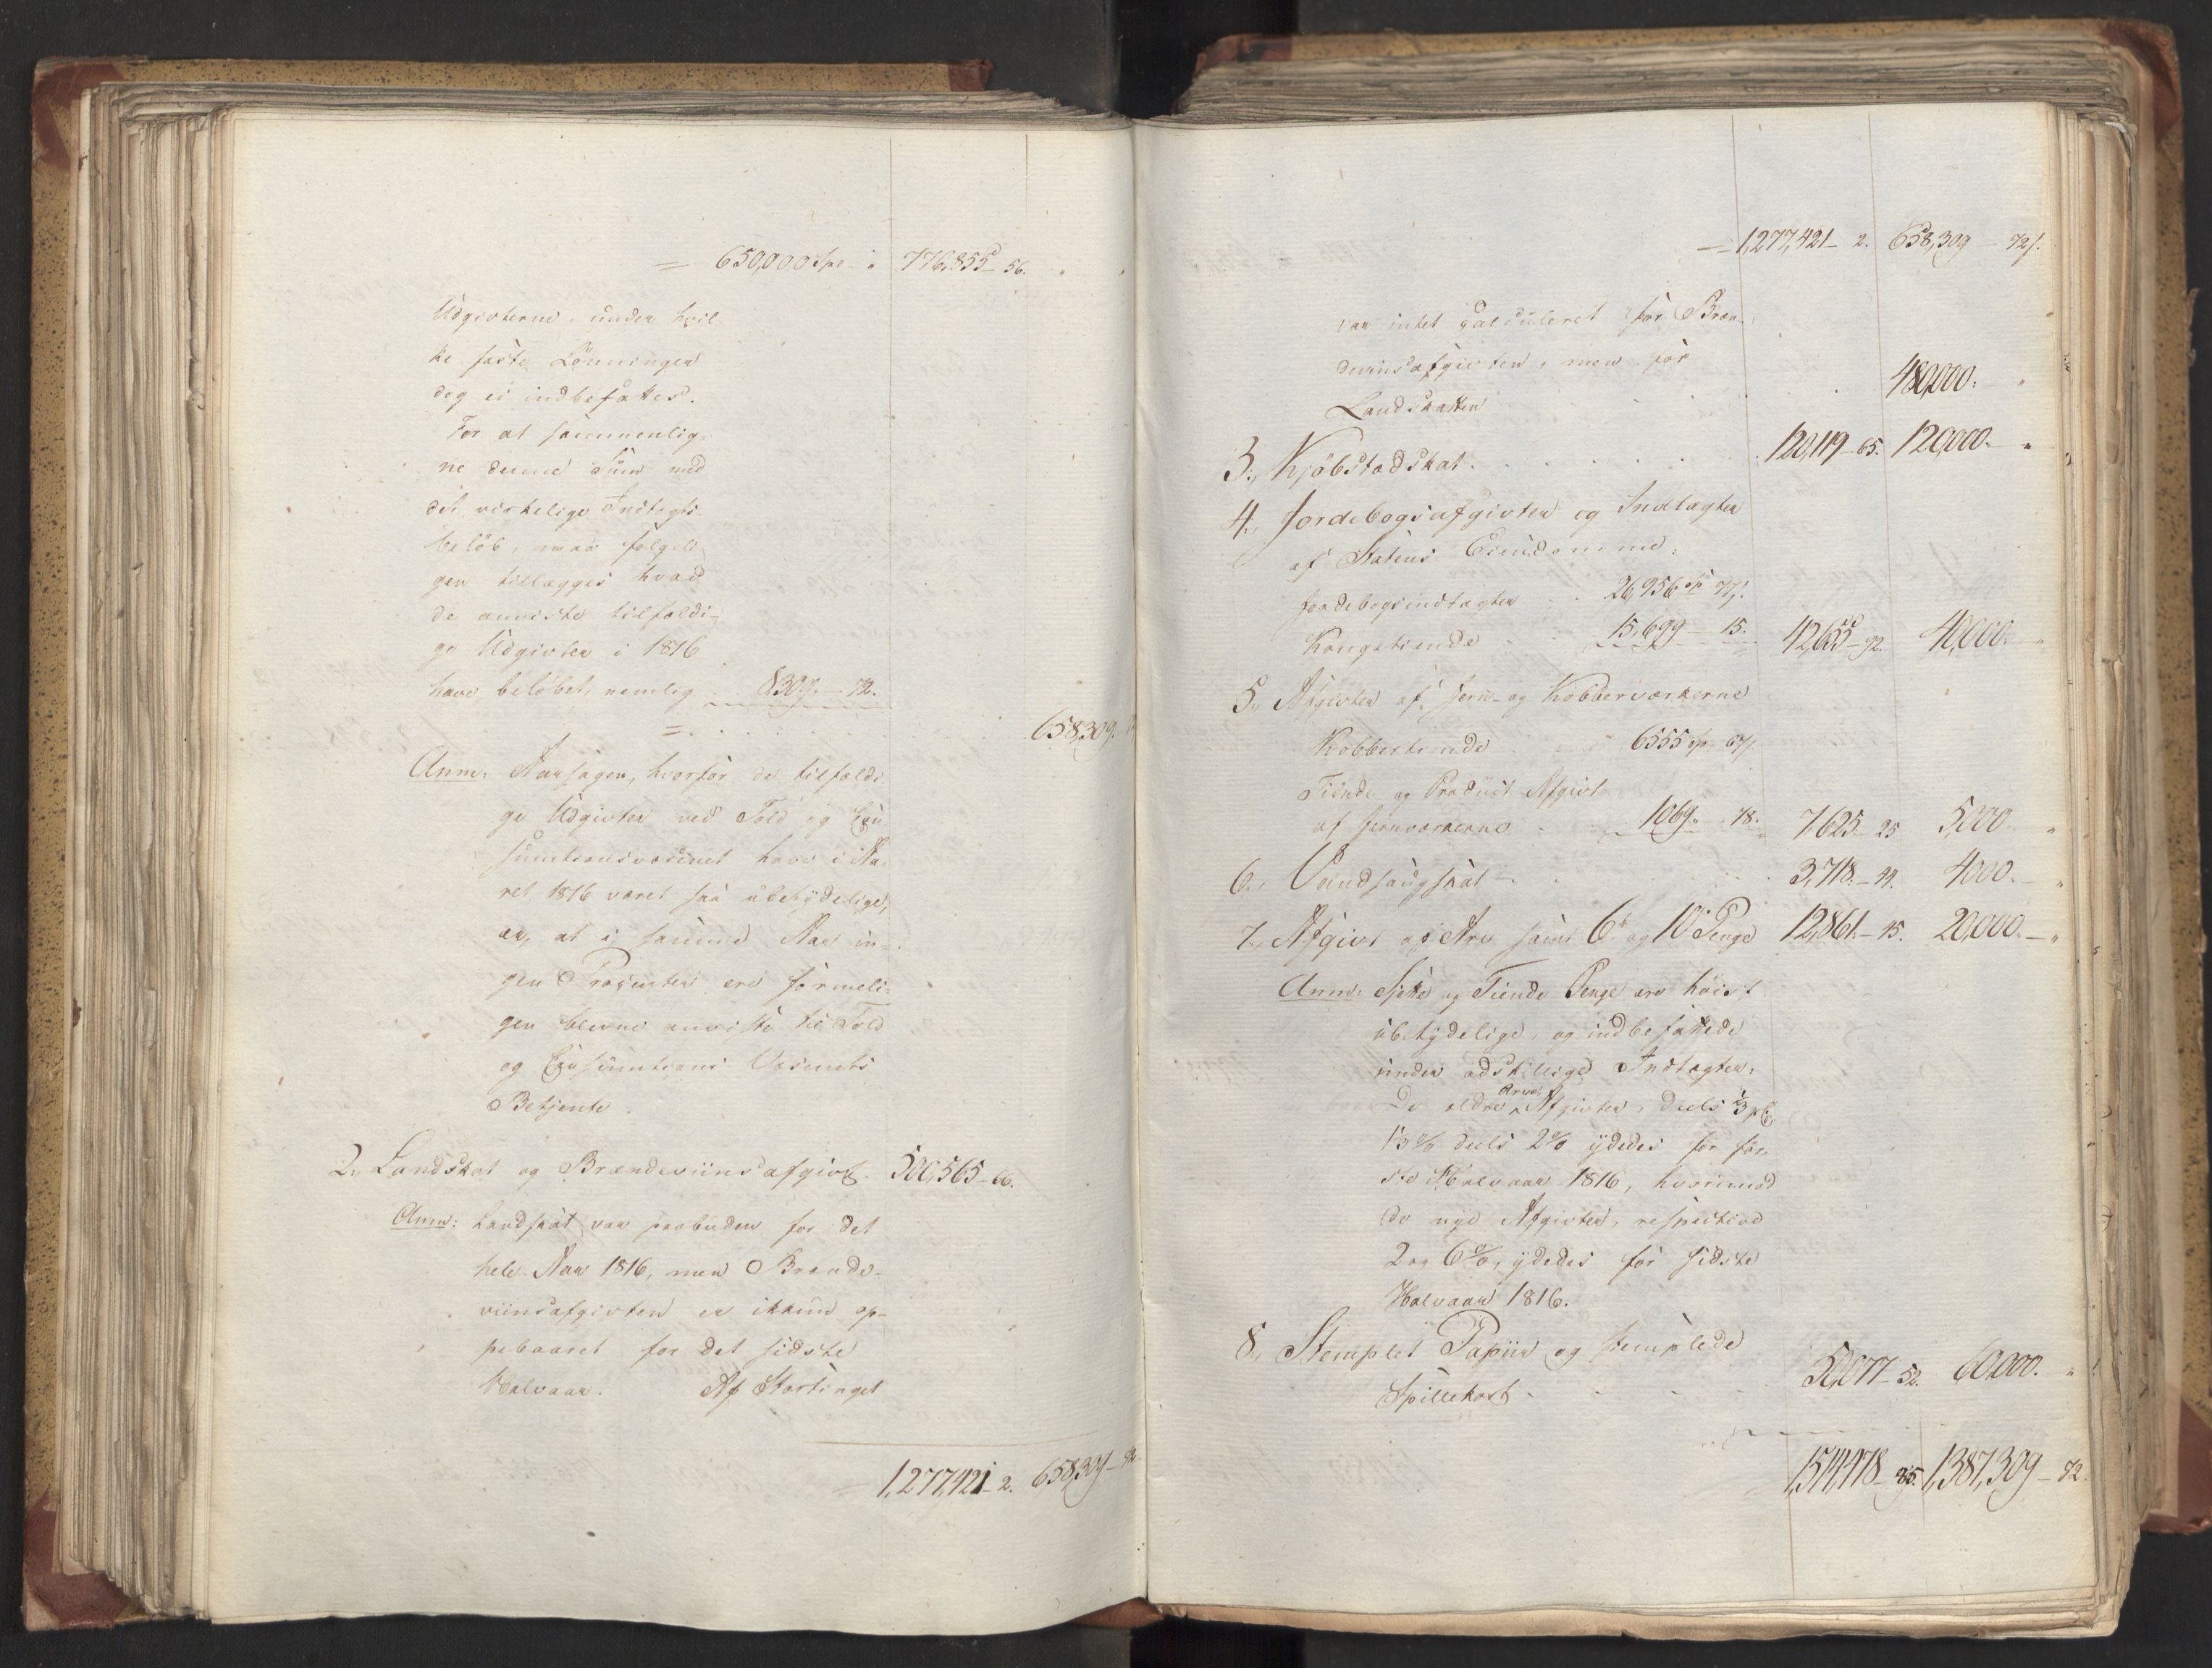 = 650,000 Spe - " 776,855 - 56. " "
Udgivterne, under hvil-
ke faste Lønninger
dog ei indbefattes.
For at sammenlig-
ne denne Sum med
det virkelige Indtægts-
beløb, maa følgeli-
gen tillægges hvad
de anviste tilfældi-
ge Udgivter i 1816
have beløbet, nemlig 8309. - 72.
= 658,309.
Anm: Aarsagen, hvorfor de tilfældi-
ge Udgivter ved Told og Con-
sumtionsvæsenet have i Aa-
ret 1816 været saa ubetydelige,
er, at i samme Aar in-
gen Procenter ere formeli-
gen blevne anviste til Told
og Consumtions Væsenets
Betjente.
2., Landskat og Brændeviinsafgivt. 500,565 - 66.
Anm: Landskat var paabuden for det
hele Aar 1816, men Brænde-
viinsafgivten er ikkun op-
pebaaret for det sidste
Halvaar. Af Stortinget
= 1,277,421 - 2. 658,309 - 72.
= 1,277,421 - 2. 658,309 - 72 s.
var intet calculeret for Bræn-
deviinsafgivten, men for
Landskatten 480,000. "
3., Kjøbstadskat. 120,119 - 65. 120,000. "
4., Jordebogsafgivter og Indtægter
af Statens Eiendomme:
Jordebogsindtægter 26,956 Sp 77 s.
Kongetiende 15,699 - 15. 42,655 - 92. 40,000. "
5., Afgivter af Jern- og Kobberværkerne
Kobbertiende 6555 Sp 67 s.
Tiende og Product Afgivt
af Jernværkerne 1069. - 78. 7625 - 25 5,000. "
6., Vandsaugskat 3,718. - 44. 4000. - "
7., Afgivt af Arv samt 6te og 10de Penge 12,861. - 15. 20,000. - "
Anm: Sjette og Tiende Penge ere høist
ubetydelige, og indbefattede
under adskillige Indtægter.
De ældre Arve Afgivter, deels 1/3 pC,
1/3 % deels 2 % ydedes for før-
ste Halvaar 1816, hvorimod
de nye Afgivter, respective
2 og 6 %, ydedes for sidste
Halvaar 1816.
8., Stemplet Papiir og stemplede
Spillekort 50,077 - 52. 60,000. "
1,514,478 - 95. 1,387,309 - 72.